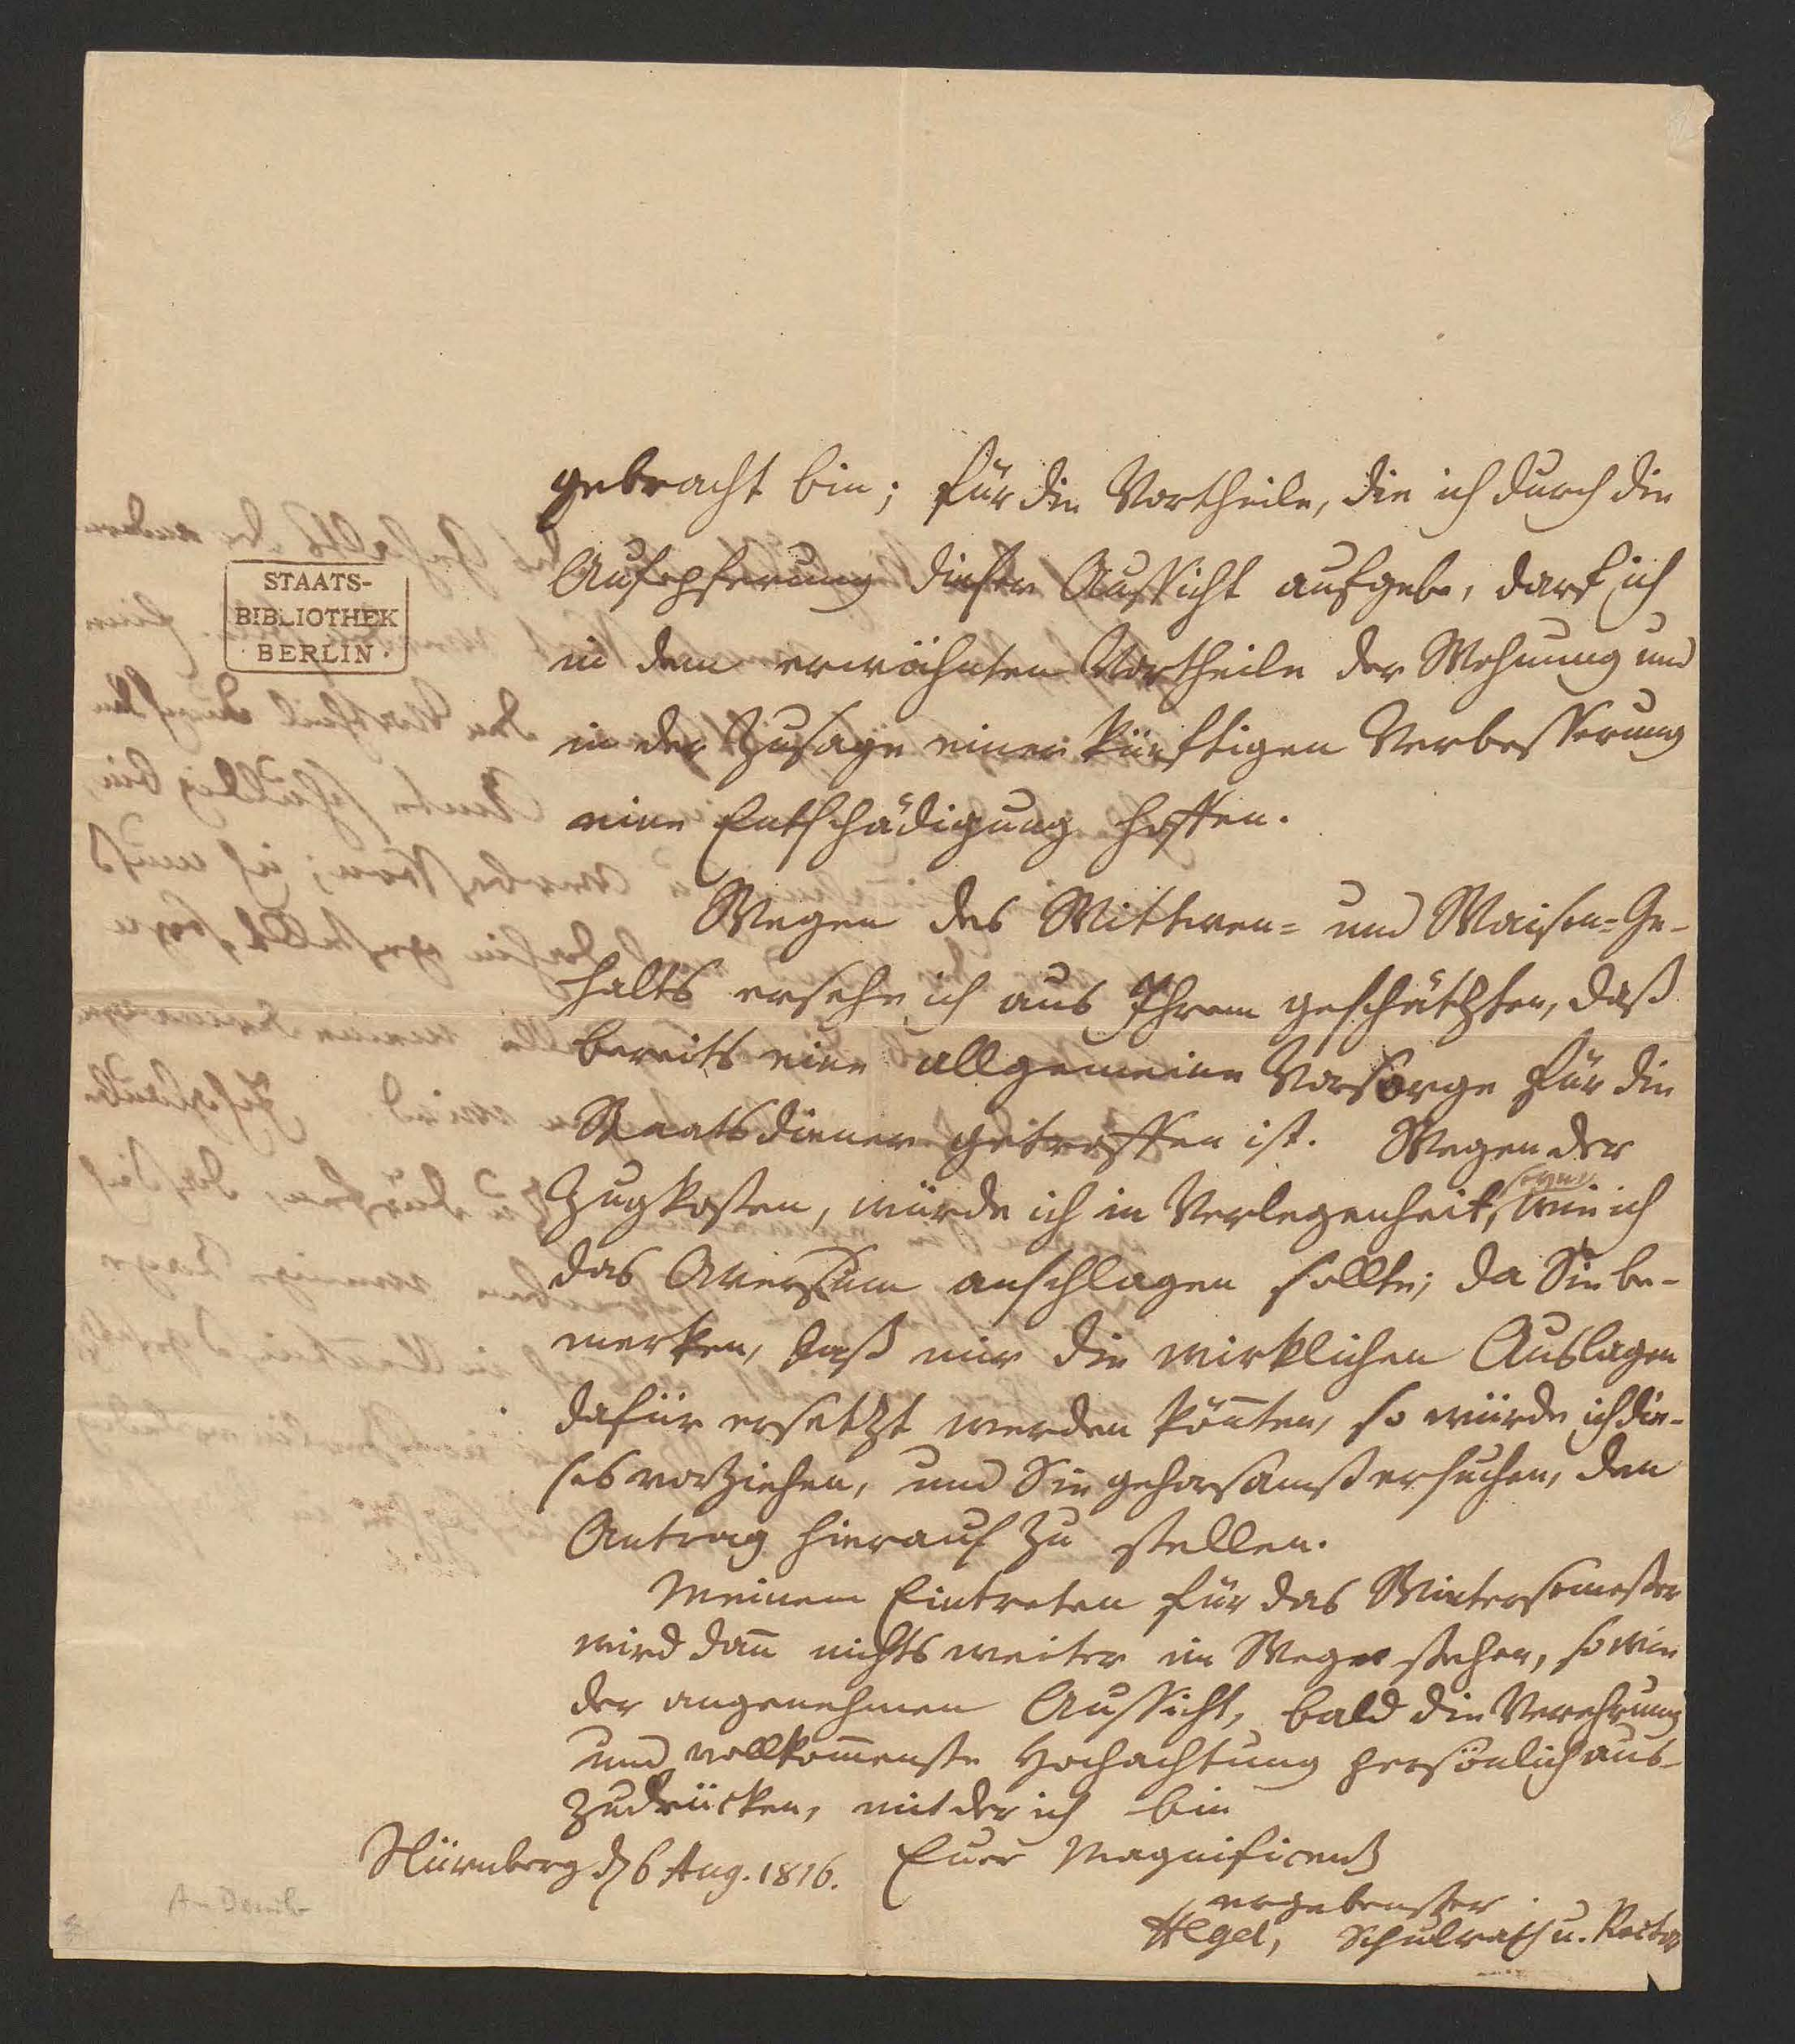 gebracht bin; für die Vortheile, die ich durch die
Aufopferung dieser Aussicht aufgebe, darf ich
in dem erwähnten Vortheile der Wohnung und
in der Zusage einer künftigen Verbesserung
eine Entschädigung hoffen.
Wegen des Wittwen- und Waisen-Ge-
halts ersehe ich aus Ihrem geschätzten, daß
bereits eine allgemeine Vorsorge für die
Staatsdiener getroffen ist. Wegen der
Zugkosten, würde ich in Verlegenheit seyn, wie ich
das Aversum anschlagen sollte; da Sie be-
merken, daß mir die wirklichen Auslagen
dafür ersetzt werden könnten, so würde ich die-
ses vorziehen, und Sie gehorsamst ersuchen, den
Antrag hierauf zu stellen.
Meinem Eintreten für das Wintersemester
wird dann nichts weiter im Wege stehen, so wie
der angenehmen Aussicht, bald die Verehrung
und vollkommenste Hochachtung persönlich aus-
zudrücken, mit der ich bin
Euer Magnificenz
Nürnberg d 6 Aug. 1816.
ergebenster
Hegel, Schulrath u. Rector
STAATS-
BIBLIOTHEK
BERLIN